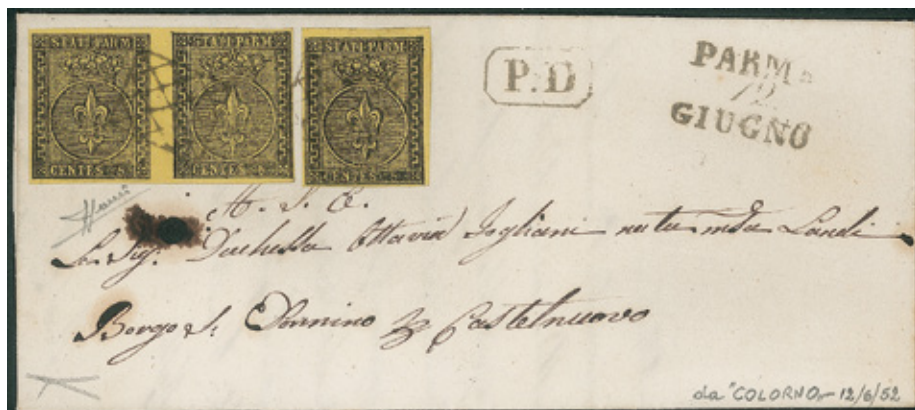 STATI PARM. STATI PARM. STATI PARM.
CENTES. 5 CENTES. 5 CENTES. 5
P.D
PARMA
12
GIUGNO
A. S. E.
La Sig. Duchessa Ottavia nata Landi
Borgo S. Donnino Castelnuovo
da "COLORNO" - 12/6/52